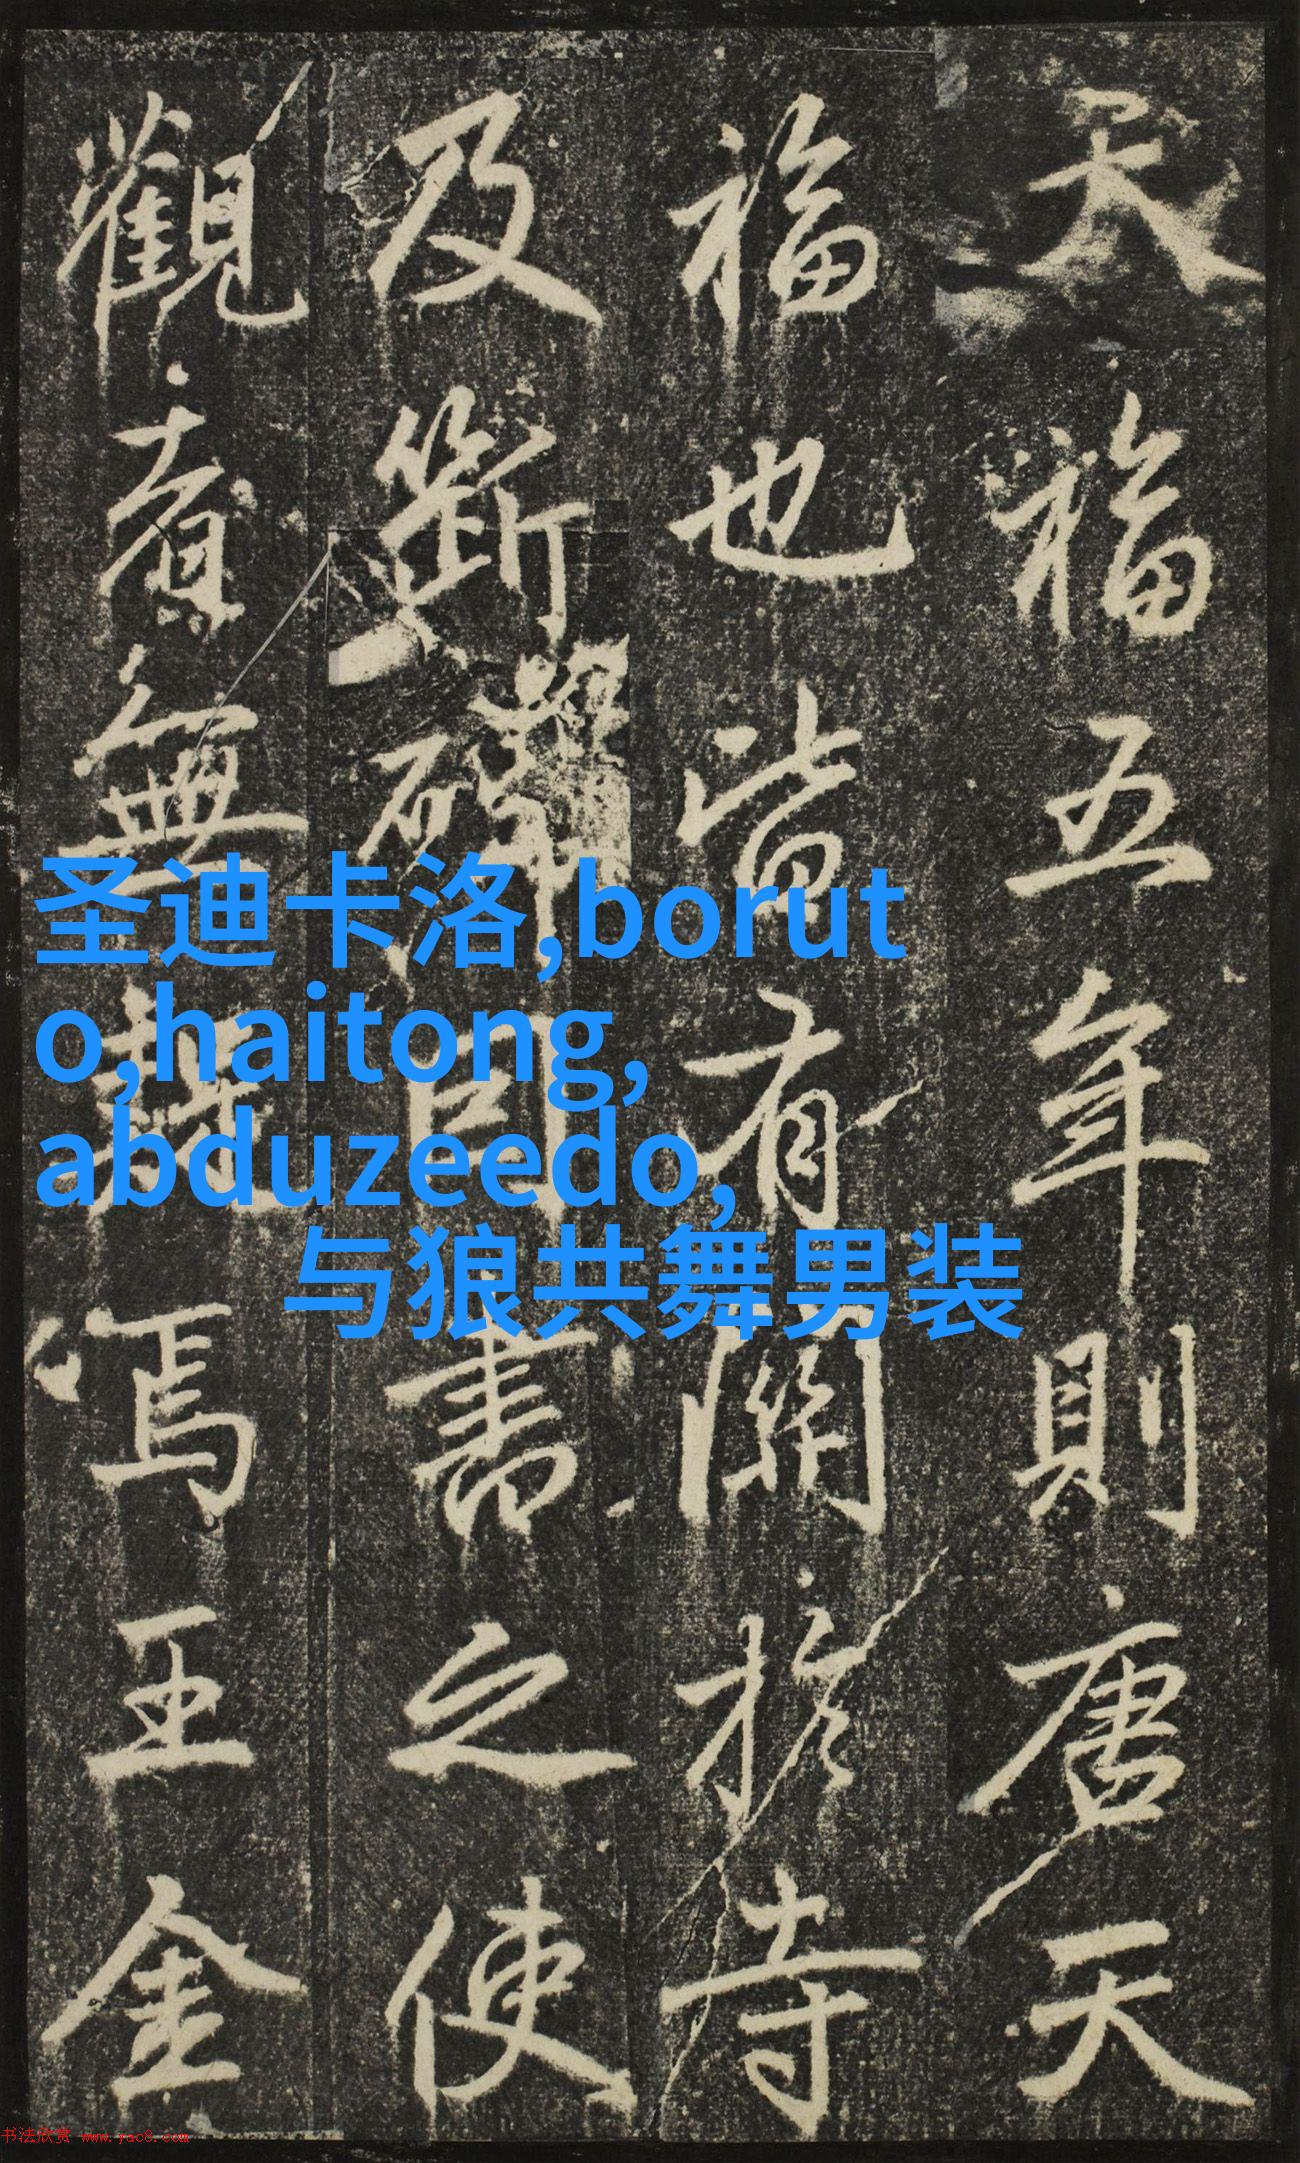 天福五年則唐天
福也皆有關於寺
及斷碑因書之使
觀者無疑焉王金
圣迪卡洛,borut
o,haitong,
abduzeedo,
与狼共舞男装
书法欣赏 www.yac8.com